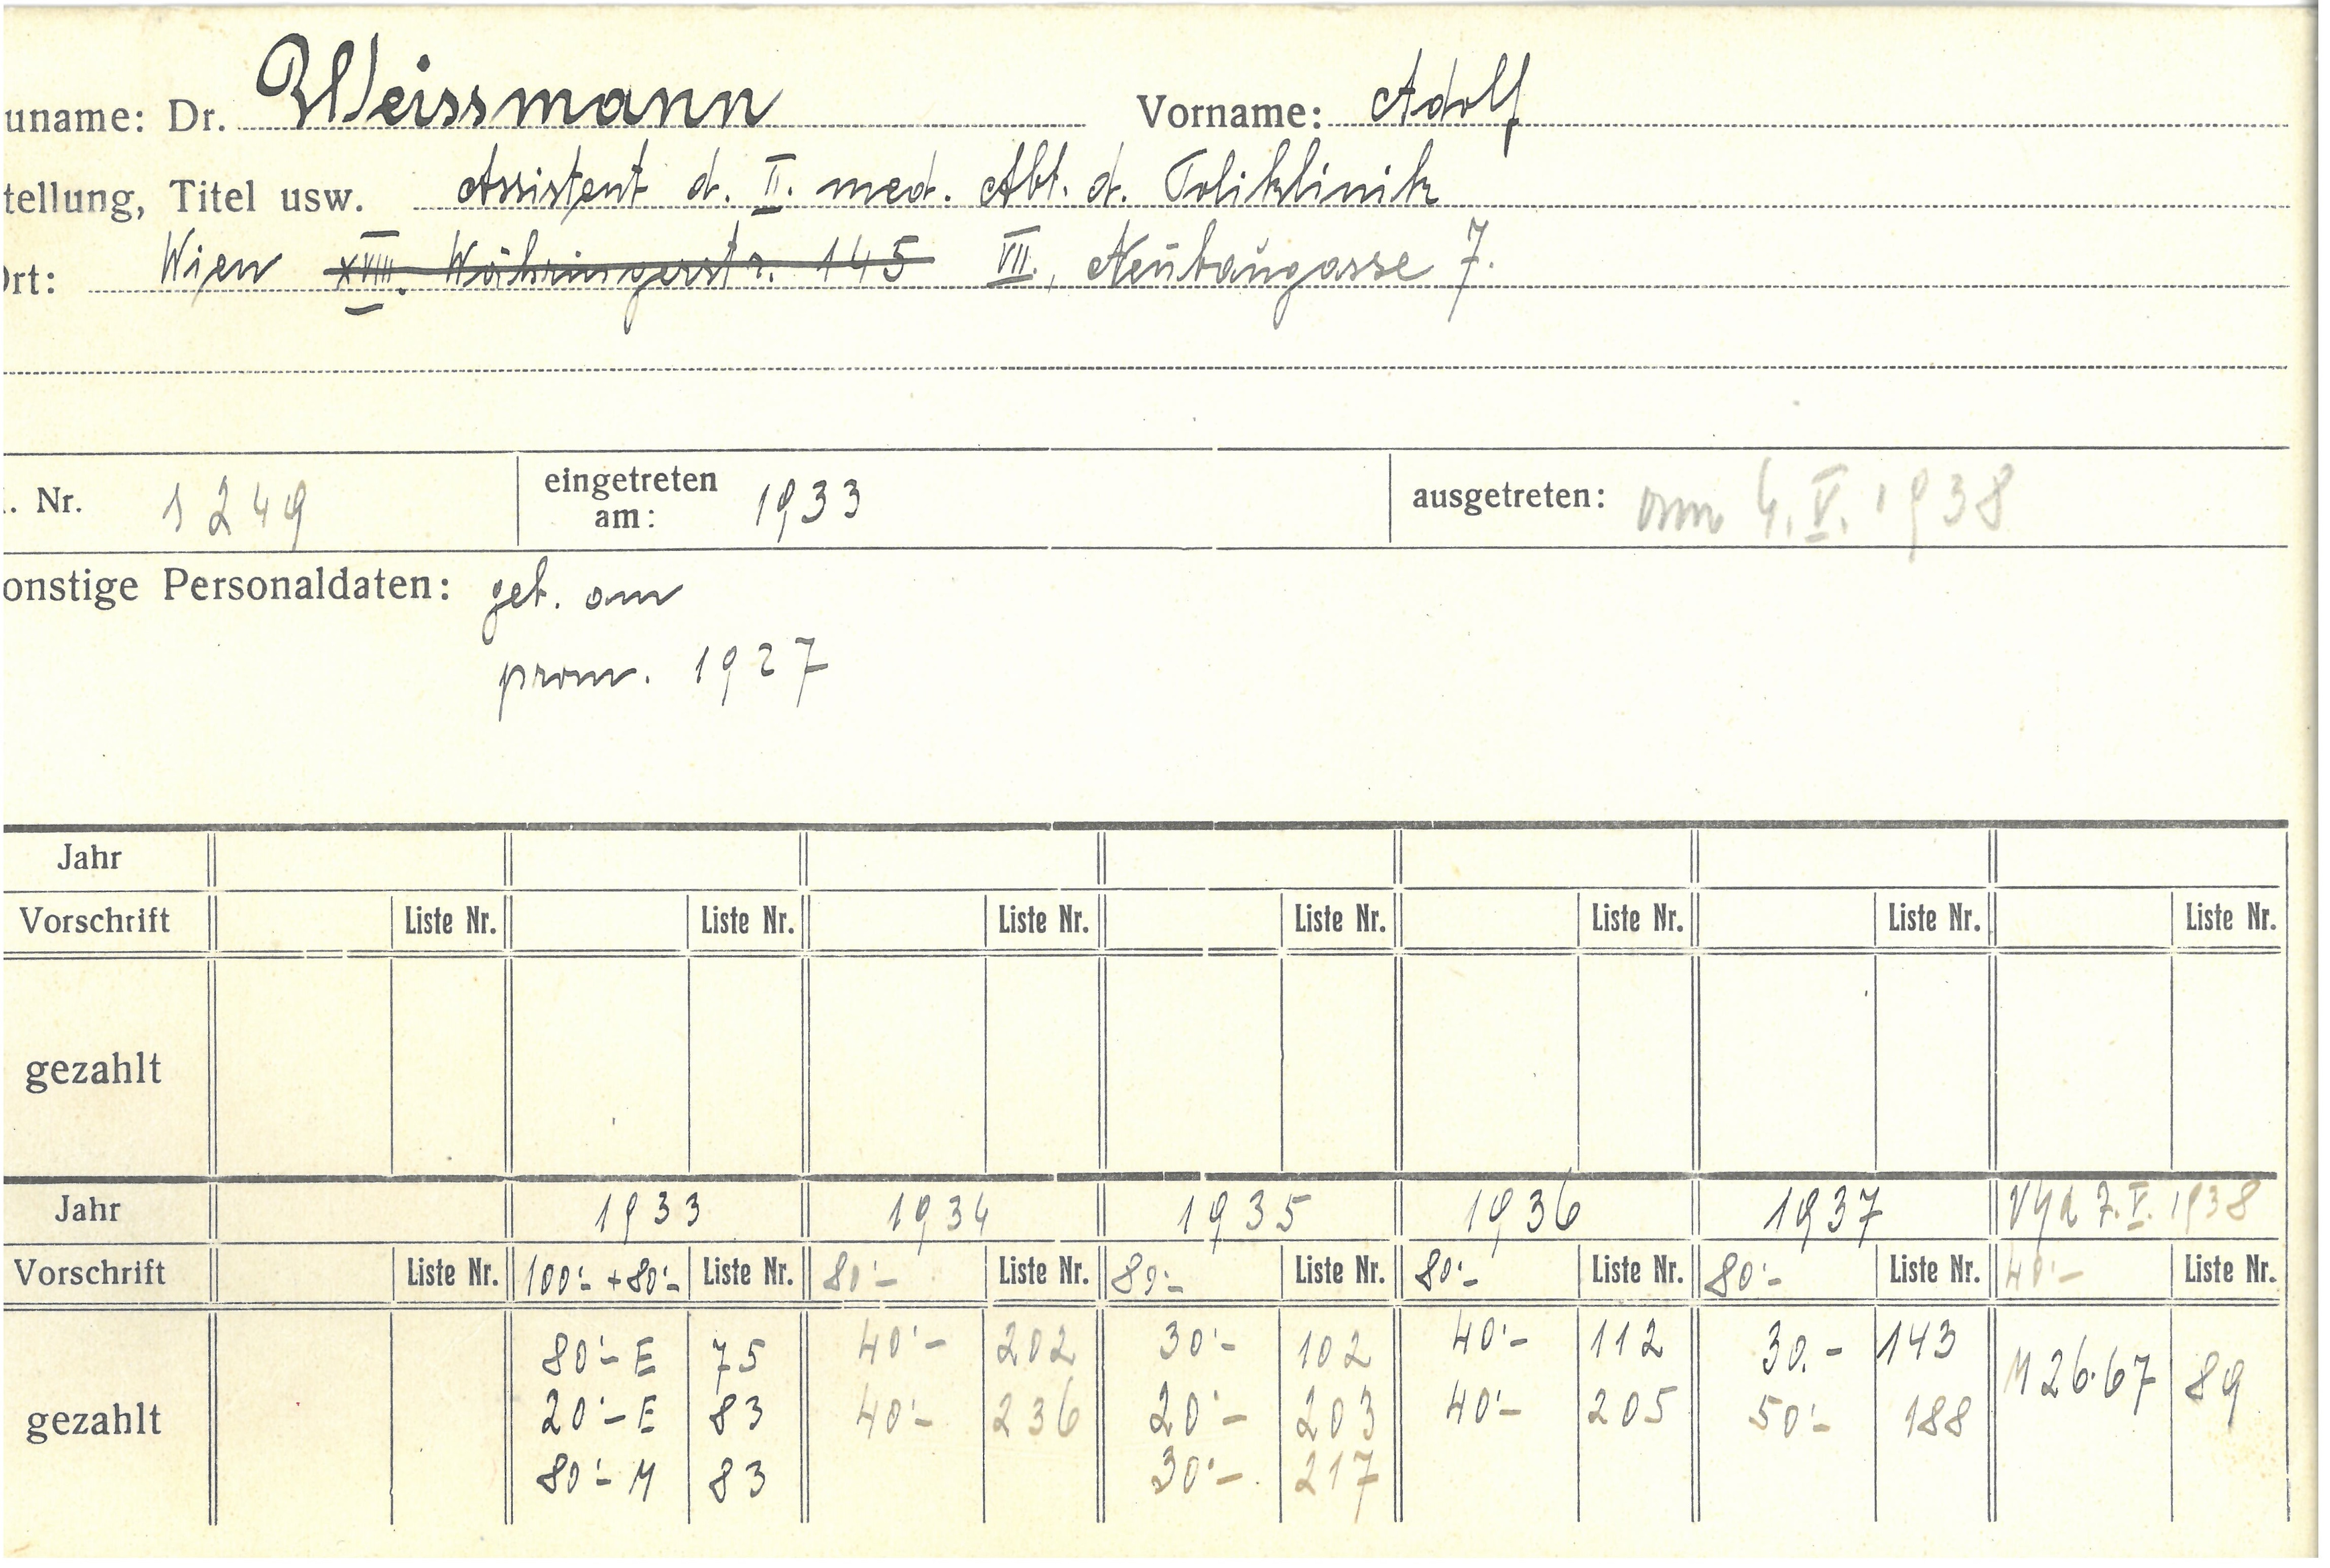 uname: Dr. Weissmann Vorname: Adolf
tellung, Titel usw. Assistent d. II. med. Abt. d. Poliklinik
Ort: Wien XVIII. Währingerstr. 145 VII., Neubaugasse 7.
. Nr. 1249 eingetreten am: 1933 ausgetreten: am 4. V. 1938
onstige Personaldaten: geb. am
prom. 1927
Jahr
Vorschrift Liste Nr. Liste Nr. Liste Nr. Liste Nr. Liste Nr. Liste Nr. Liste Nr.
gezahlt
Jahr 1933 1934 1935 1936 1937 7. V. 1938
Vorschrift Liste Nr. 100'- + 80'- Liste Nr. 80'- Liste Nr. 80'- Liste Nr. 80'- Liste Nr. 80'- Liste Nr. 40'- Liste Nr.
gezahlt
80'- E 75 40'- 202 30'- 102 40'- 112 30.- 143 M 26.67 89
20'- E 83 40'- 236 20'- 203 40'- 205 50'- 188
80'- M 83 30'- 217